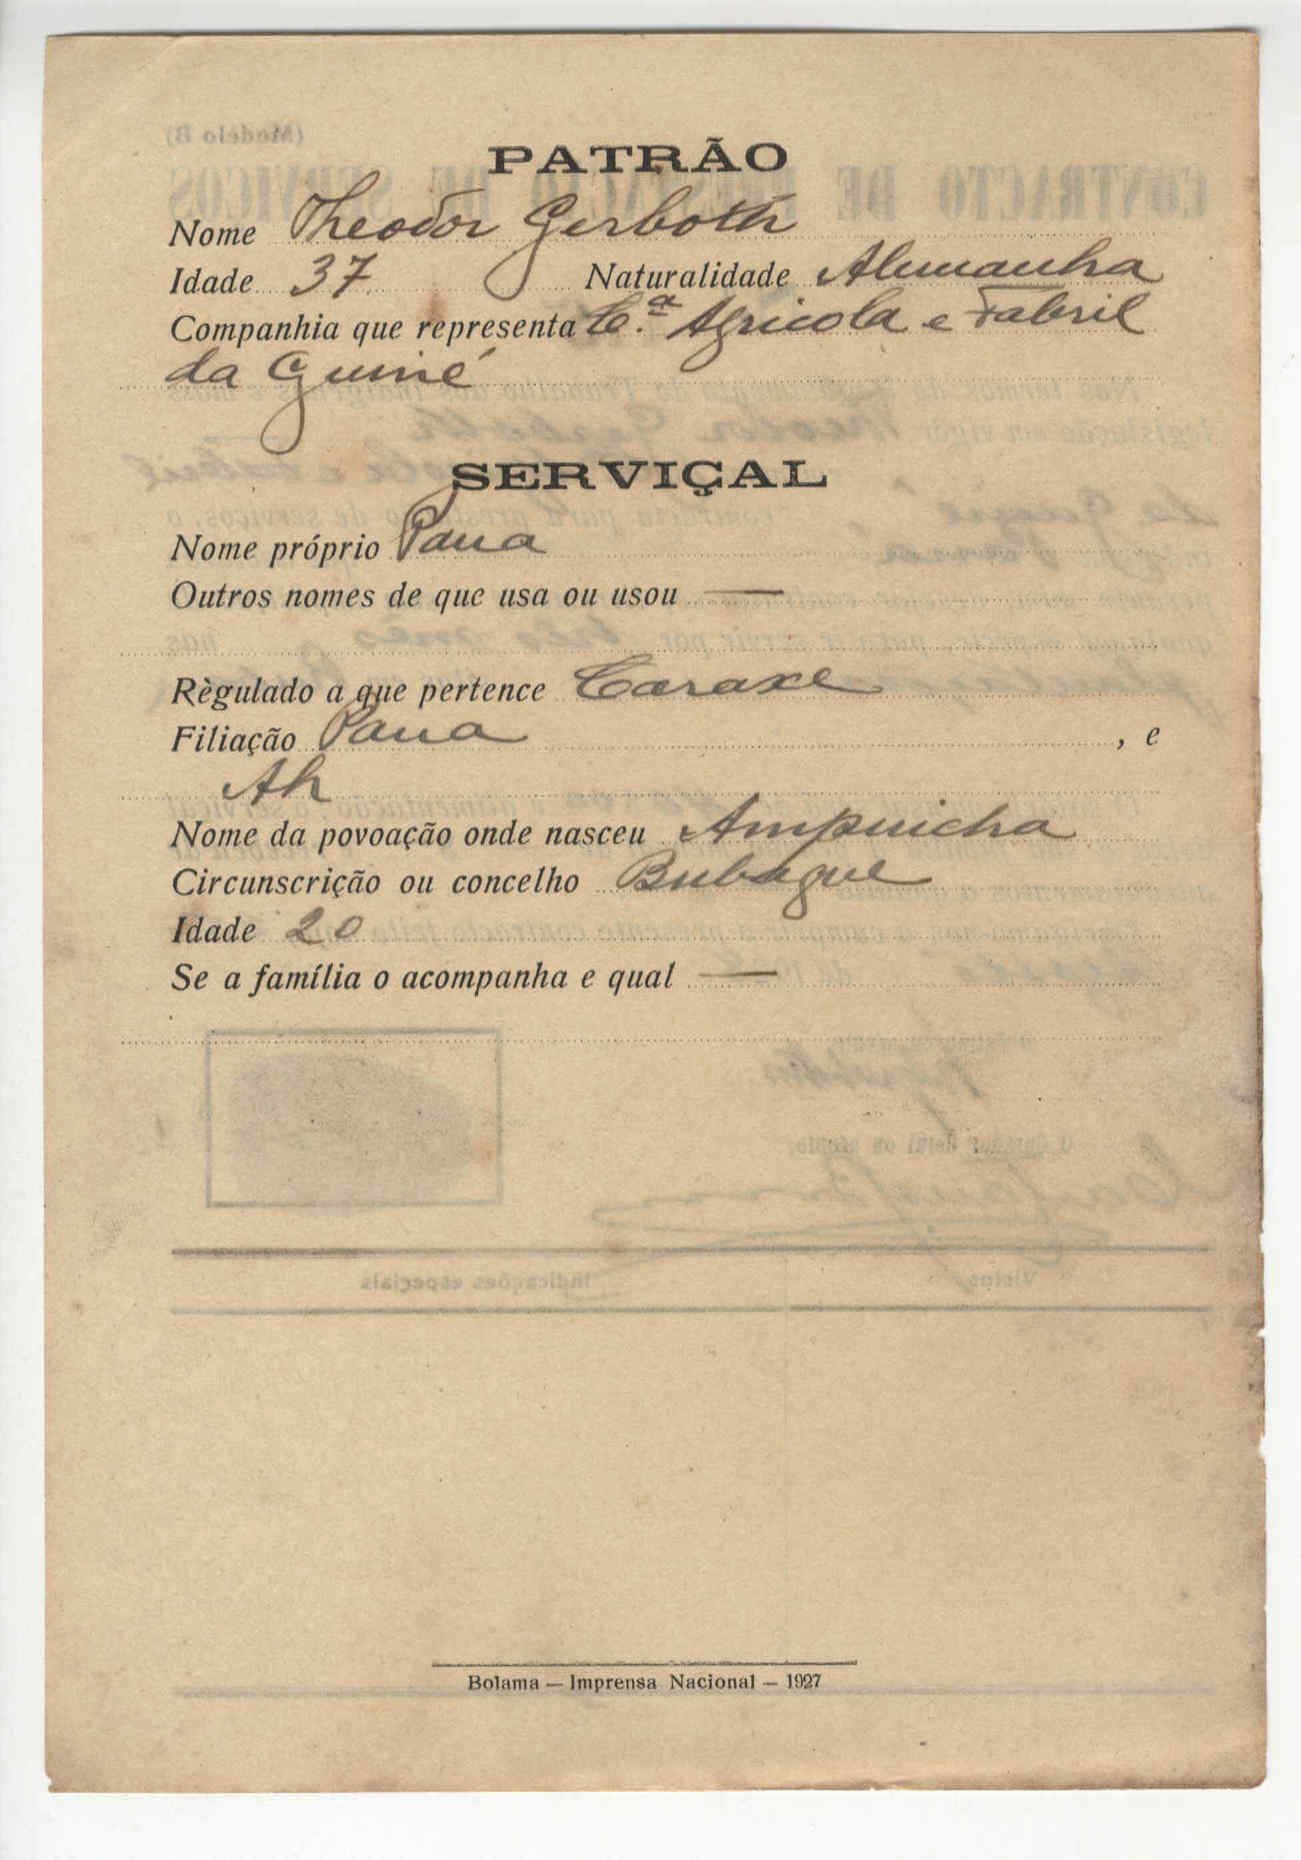 PATRÃO
Nome Theodor Gerboth
Idade 37 Naturalidade Alemanha
Companhia que representa C.ª Agricola e Fabril
da Guiné
SERVIÇAL
Nome próprio Pana
Outros nomes de que usa ou usou —
Règulado a que pertence Caraxe
Filiação Pana , e
Ah
Nome da povoação onde nasceu Ampuicha
Circunscrição ou concelho Bubaque
Idade 20
Se a família o acompanha e qual —
Bolama — Imprensa Nacional — 1927